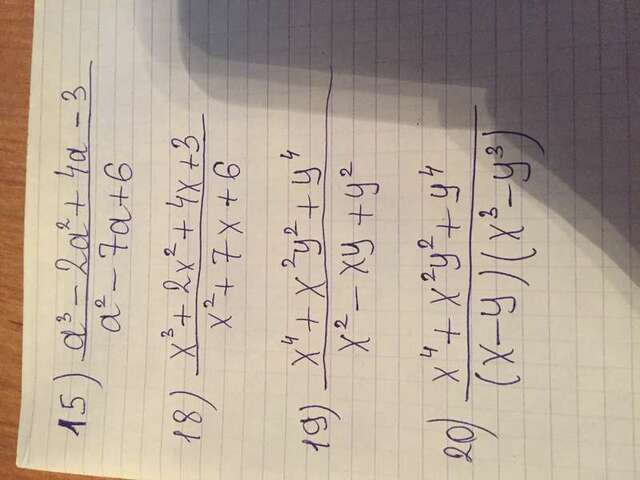 15) a³ − 2a² + 4a − 3
a² − 7a + 6
18) x³ + 2x² + 4x + 3
x² + 7x + 6
19) x⁴ + x²y² + y⁴
x² − xy + y²
20) x⁴ + x²y² + y⁴
(x − y)(x³ − y³)